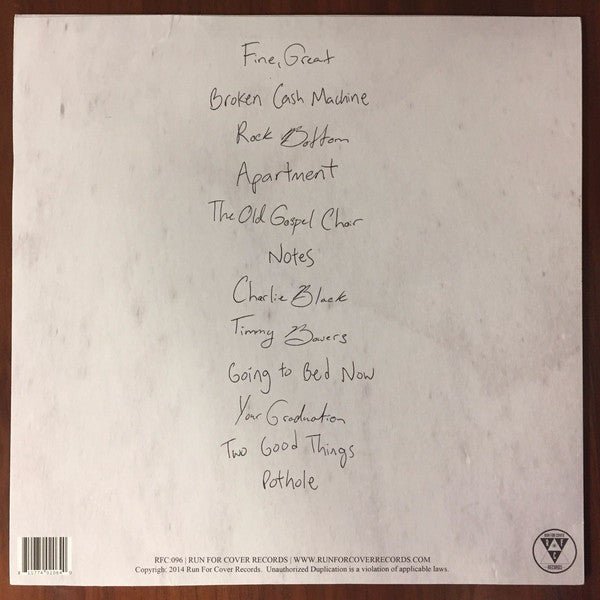 Fine, Great
Broken Cash Machine
Rock Bottom
Apartment
The Old Gospel Choir
Notes
Charlie Black
Timmy Bowers
Going to Bed Now
Your Graduation
Two Good Things
Pothole
RFC 096 | RUN FOR COVER RECORDS | WWW.RUNFORCOVERRECORDS.COM
Copyright 2014 Run For Cover Records. Unauthorized Duplication is a violation of applicable laws.
RUN FOR COVER
R F C
RECORDS